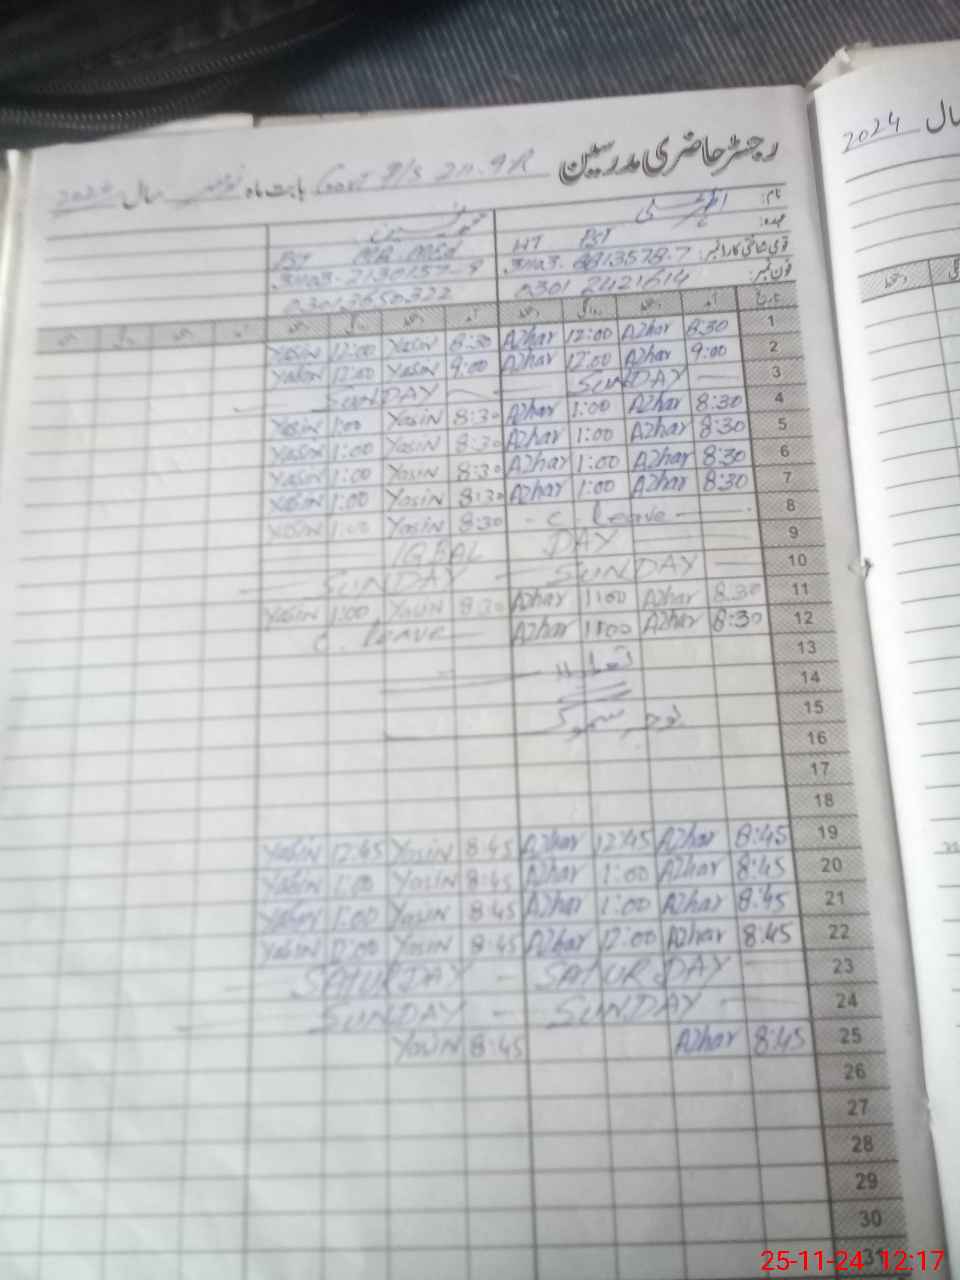 رجسٹر حاضری مدرسین Govt P/S 211.9R بابت ماہ نومبر سال 2024
سال 2024
نام:
عہدہ: HT PST
PST MA MEd
قومی شناختی کارڈ نمبر:
فون نمبر: 0301 2421614
تاریخ
1 8:30 Azhar 12:00 Azhar 8:30 Yasin 12:00 Yasin
2 9:00 Azhar 12:00 Azhar 9:00 Yasin 12:00 Yasin
3 SUNDAY SUNDAY
4 8:30 Azhar 1:00 Azhar 8:30 Yasin 1:00 Yasin
5 8:30 Azhar 1:00 Azhar 8:30 Yasin 1:00 Yasin
6 8:30 Azhar 1:00 Azhar 8:30 Yasin 1:00 Yasin
7 8:30 Azhar 1:00 Azhar 8:30 Yasin 1:00 Yasin
8 C. Leave 8:30 Yasin 1:00 Yasin
9 IQBAL DAY
10 SUNDAY SUNDAY
11 8:30 Azhar 1:00 Azhar 8:30 Yasin 1:00 Yasin
12 8:30 Azhar 1:00 Azhar C. Leave
13
14
15
16
17
18
19 8:45 Azhar 12:45 Azhar 8:45 Yasin 12:45 Yasin
20 8:45 Azhar 1:00 Azhar 8:45 Yasin 1:00 Yasin
21 8:45 Azhar 1:00 Azhar 8:45 Yasin 1:00 Yasin
22 8:45 Azhar 12:00 Azhar 8:45 Yasin 12:00 Yasin
23 SATURDAY SATURDAY
24 SUNDAY SUNDAY
25 8:45 Azhar 8:45 Yasin
26
27
28
29
30
31
25-11-24 12:17